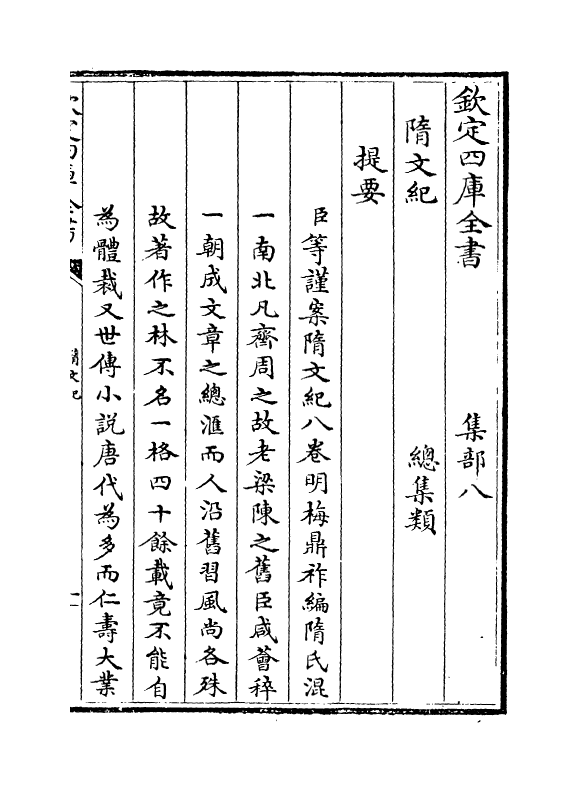 欽定四庫全書　集部八
隋文紀　總集類
提要
臣等謹案隋文紀八卷明梅鼎祚編隋氏混
一南北凡齊周之故老梁陳之舊臣咸薈稡
一朝成文章之總滙而人沿舊習風尚各殊
故著作之林不名一格四十餘載竟不能自
為體裁又世傳小説唐代為多而仁壽大業
隋文紀